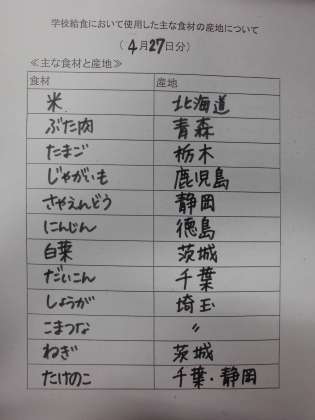 学校給食において使用した主な食材の産地について
（4月27日分）
≪主な食材と産地≫
食材 産地
米 北海道
ぶた肉 青森
たまご 栃木
じゃがいも 鹿児島
さやえんどう 静岡
にんじん 徳島
白菜 茨城
だいこん 千葉
しょうが 埼玉
こまつな 〃
ねぎ 茨城
たけのこ 千葉・静岡